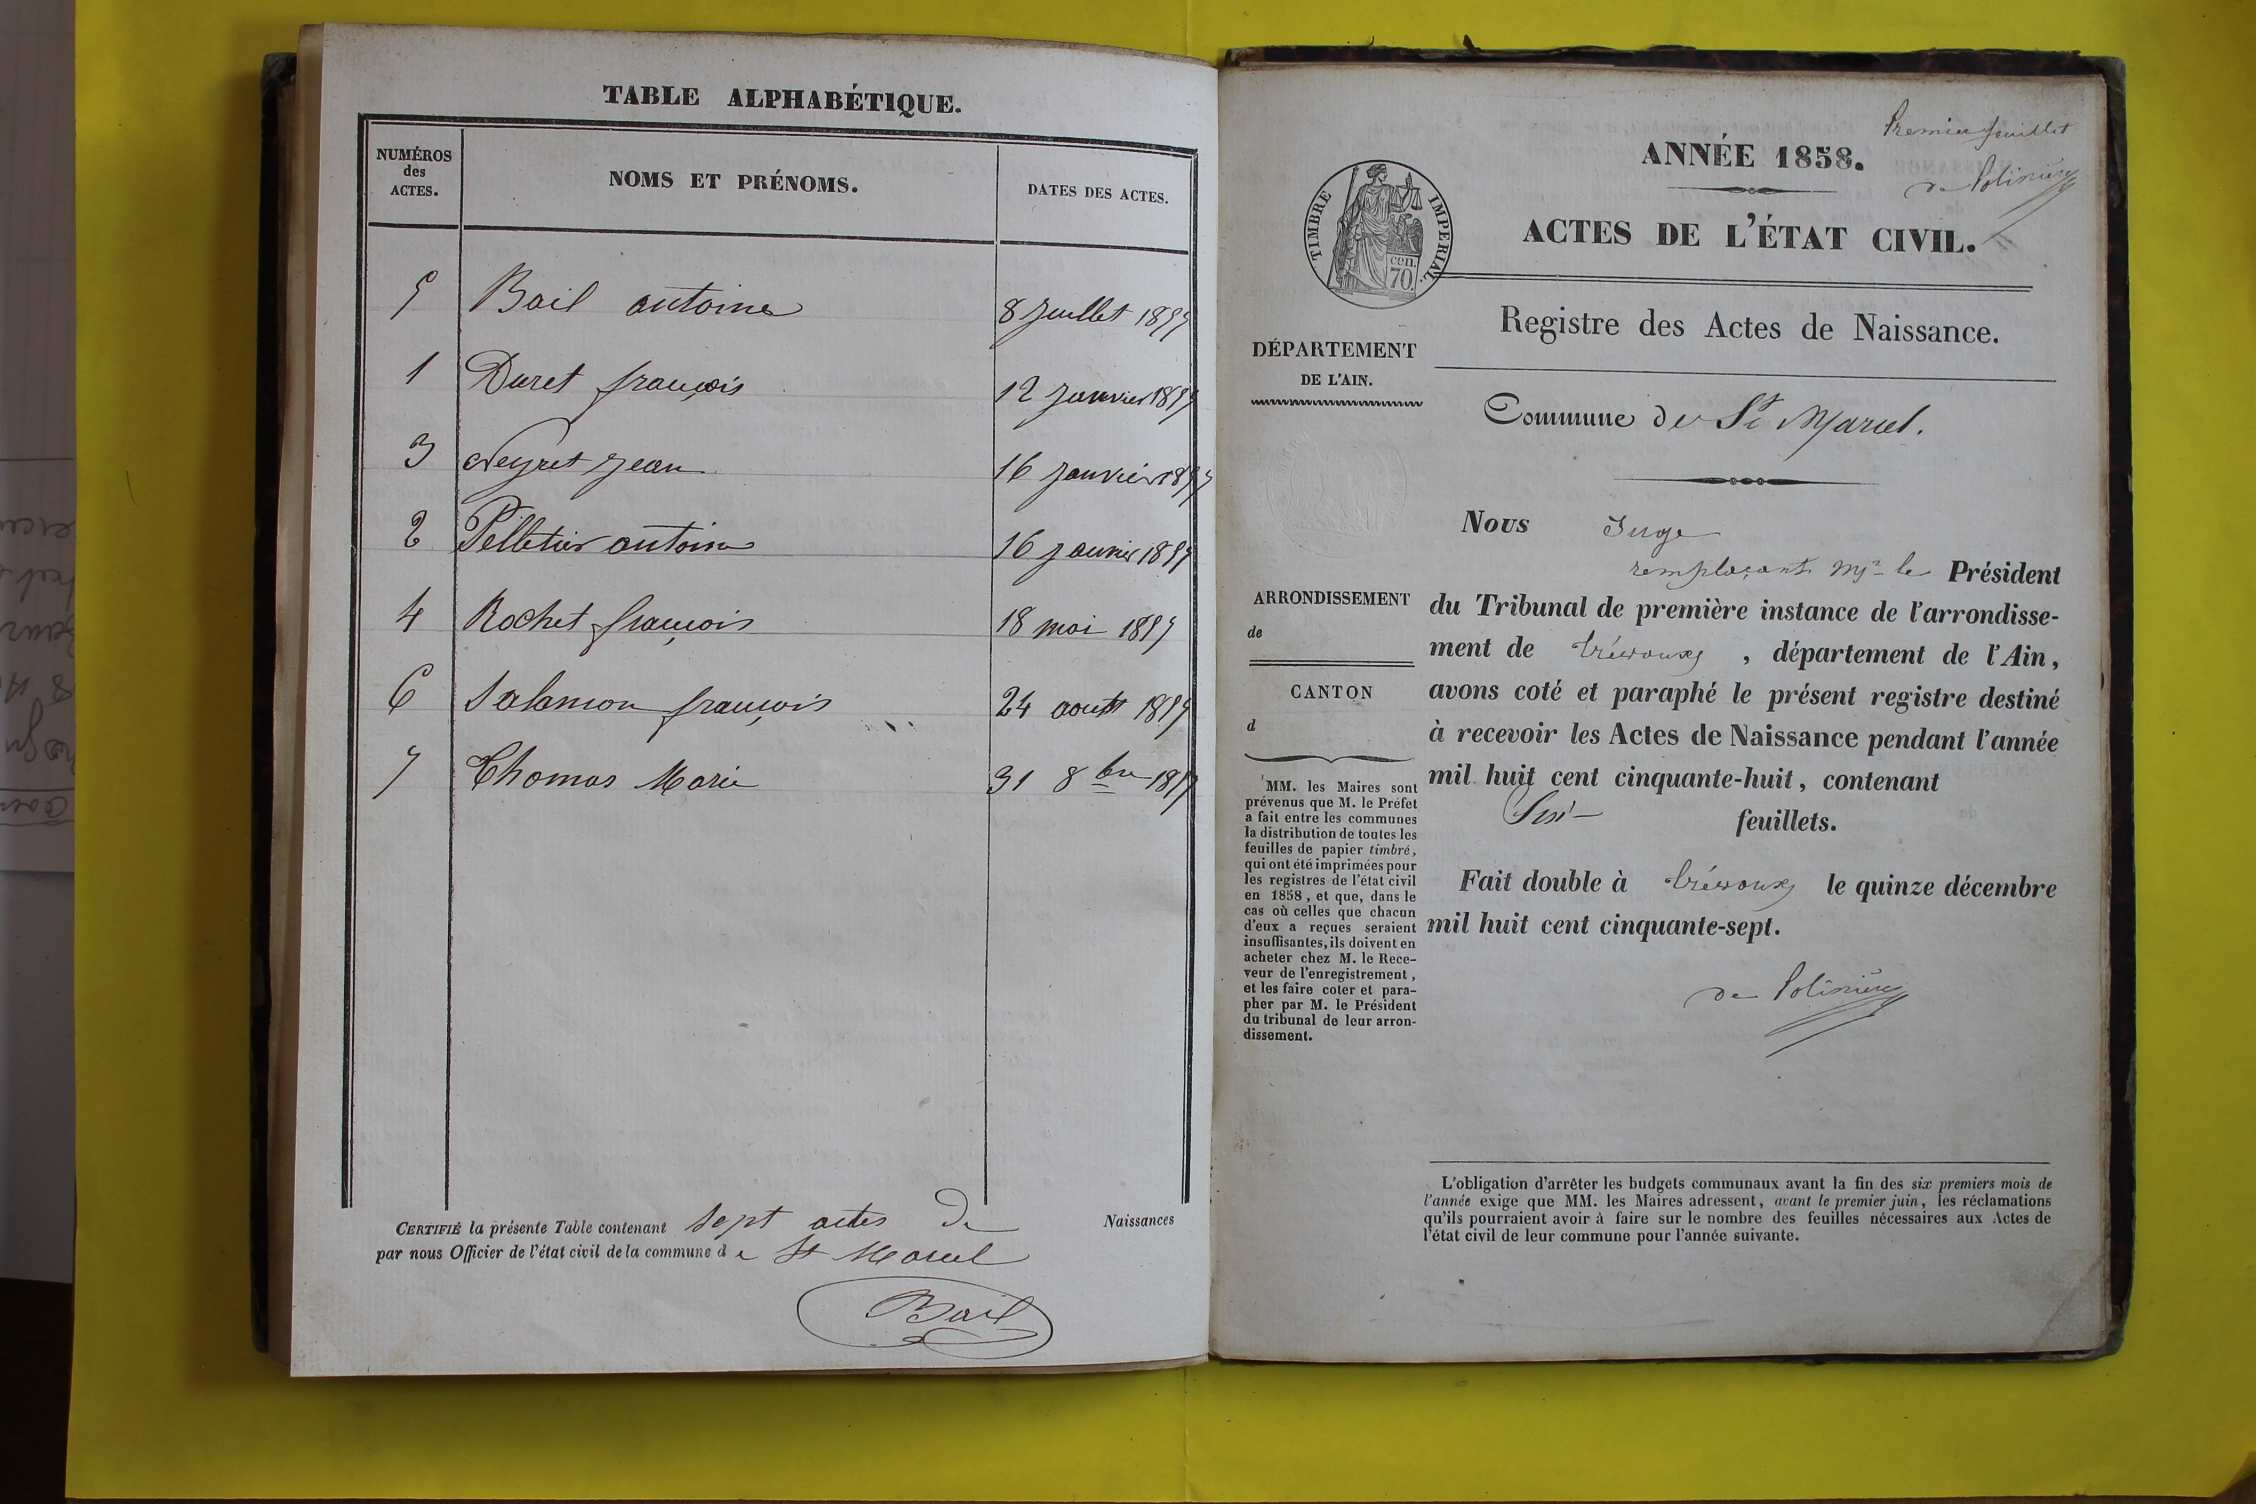 TABLE ALPHABÉTIQUE.
NUMÉROS des ACTES.
NOMS ET PRÉNOMS.
DATES DES ACTES.
5 Bail antoine 8 juillet 1857
1 Duret françois 12 janvier 1857
3 Neyret jean 16 janvier 1857
2 Pelletier antoine 16 janvier 1857
4 Rochet françois 18 mai 1857
6 Salamon françois 24 aoust 1857
7 Thomas Marie 31 8bre 1857
CERTIFIÉ la présente Table contenant sept actes de Naissances
par nous Officier de l'état civil de la commune de St Marcel
Bail
Premier feuillet
de Polinière
ANNÉE 1858.
TIMBRE IMPERIAL.
cen. 70.
ACTES DE L'ÉTAT CIVIL.
Registre des Actes de Naissance.
DÉPARTEMENT
DE L'AIN.
Commune de St Marcel.
ARRONDISSEMENT
de
CANTON
d
MM. les Maires sont
prévenus que M. le Préfet
a fait entre les communes
la distribution de toutes les
feuilles de papier timbré,
qui ont été imprimées pour
les registres de l'état civil
en 1858, et que, dans le
cas où celles que chacun
d'eux a reçues seraient
insuffisantes, ils doivent en
acheter chez M. le Rece-
veur de l'enregistrement,
et les faire coter et para-
pher par M. le Président
du tribunal de leur arron-
dissement.
Nous Juge
remplaçant Mr le Président
du Tribunal de première instance de l'arrondisse-
ment de Trévoux, département de l'Ain,
avons coté et paraphé le présent registre destiné
à recevoir les Actes de Naissance pendant l'année
mil huit cent cinquante-huit, contenant
Six feuillets.
Fait double à Trévoux le quinze décembre
mil huit cent cinquante-sept.
de Polinière
L'obligation d'arrêter les budgets communaux avant la fin des six premiers mois de
l'année exige que MM. les Maires adressent, avant le premier juin, les réclamations
qu'ils pourraient avoir à faire sur le nombre des feuilles nécessaires aux Actes de
l'état civil de leur commune pour l'année suivante.